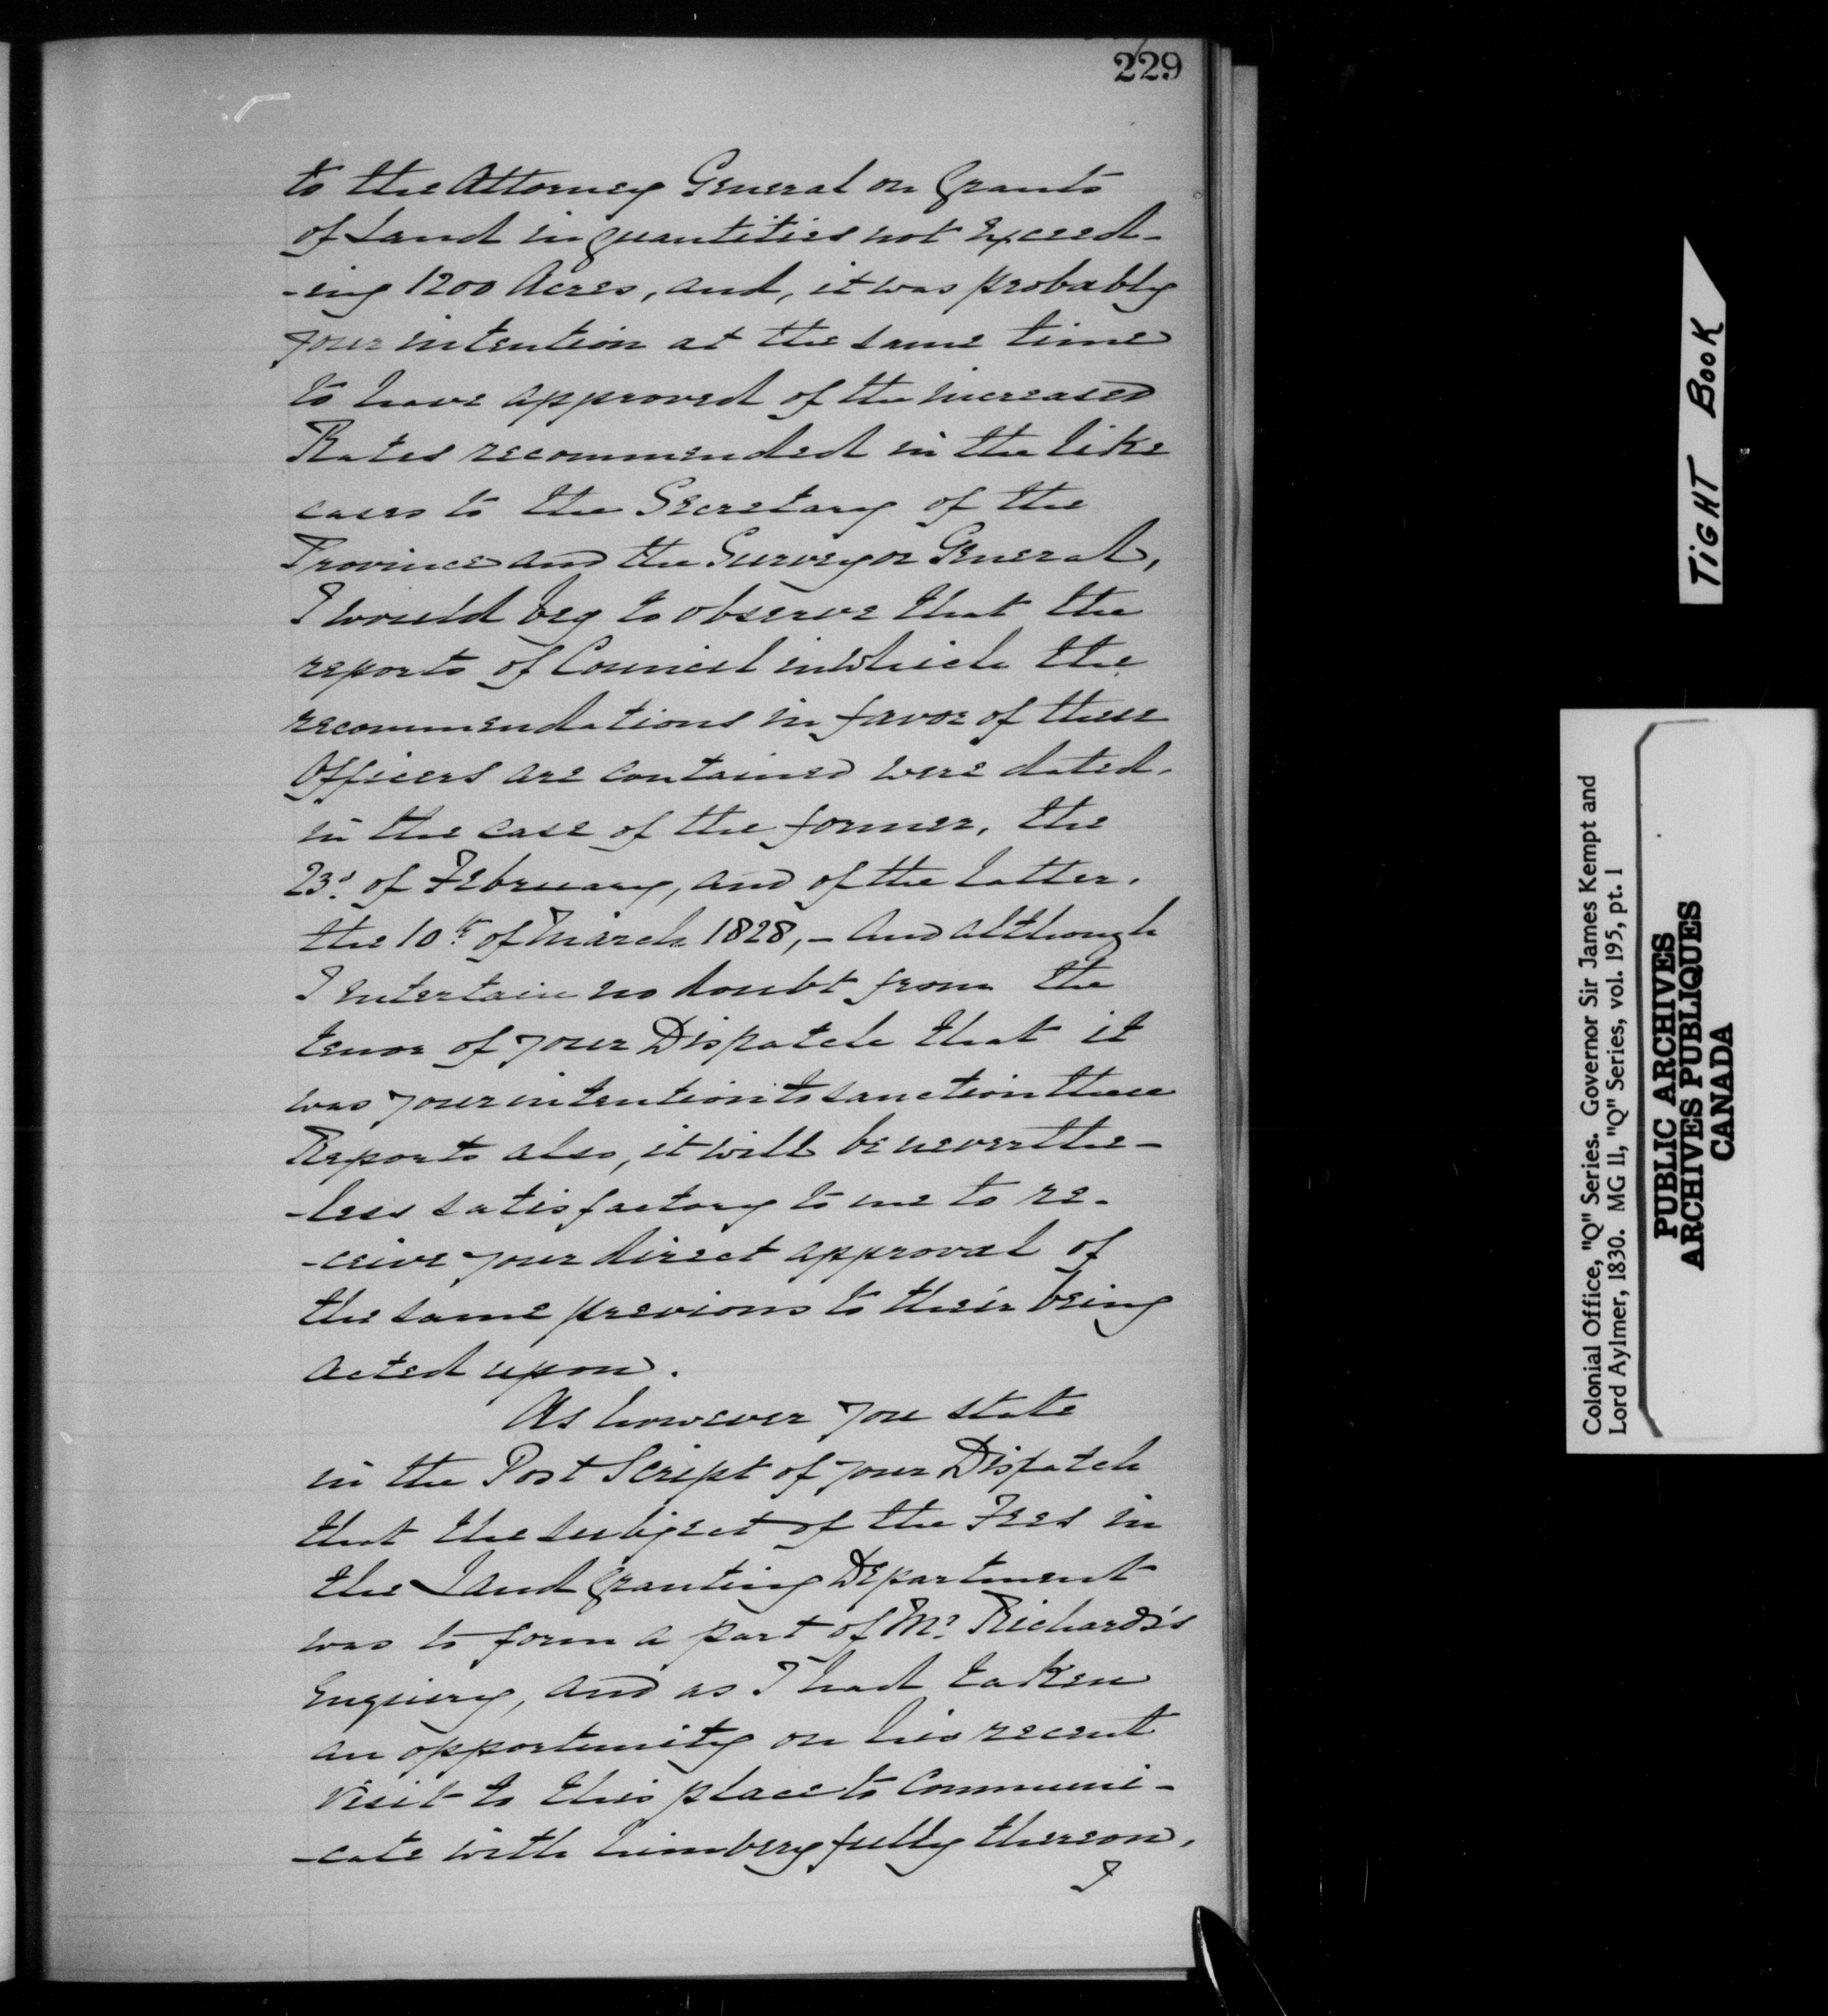 229
to the Attorney General on Grants
of Land in quantities not exceed-
-ing 1200 Acres, and, it was probably
your intention at the same time
to have approved of the increased
Rates recommended in the like
cases to the Secretary of the
Province and the Surveyor General,
I would beg to observe that the
reports of Council in which the
recommendations in favor of these
Officers are contained were dated,
in the case of the former, the
23d. of February, and of the latter,
the 10th of March 1828,- and although
I entertain no doubt from the
tenor of your Dispatch that it
was your intention to sanction these
Reports also, it will be neverthe-
-less satisfactory to me to re-
-ceive your direct approval of
the same previous to their being
acted upon.
As however you state
in the Post Script of your Dispatch
that the subject of the Fees in
the Land Granting Department
was to form a part of Mr. Richards's
Enquiry, and as I had taken
an opportunity on his recent
visit to this place to Communi-
-cate with him very fully thereon,
I
TIGHT BOOK
Colonial Office, "Q" Series. Governor Sir James Kempt and
Lord Aylmer, 1830. MG 11, "Q" Series, vol. 195, pt. 1
PUBLIC ARCHIVES
ARCHIVES PUBLIQUES
CANADA